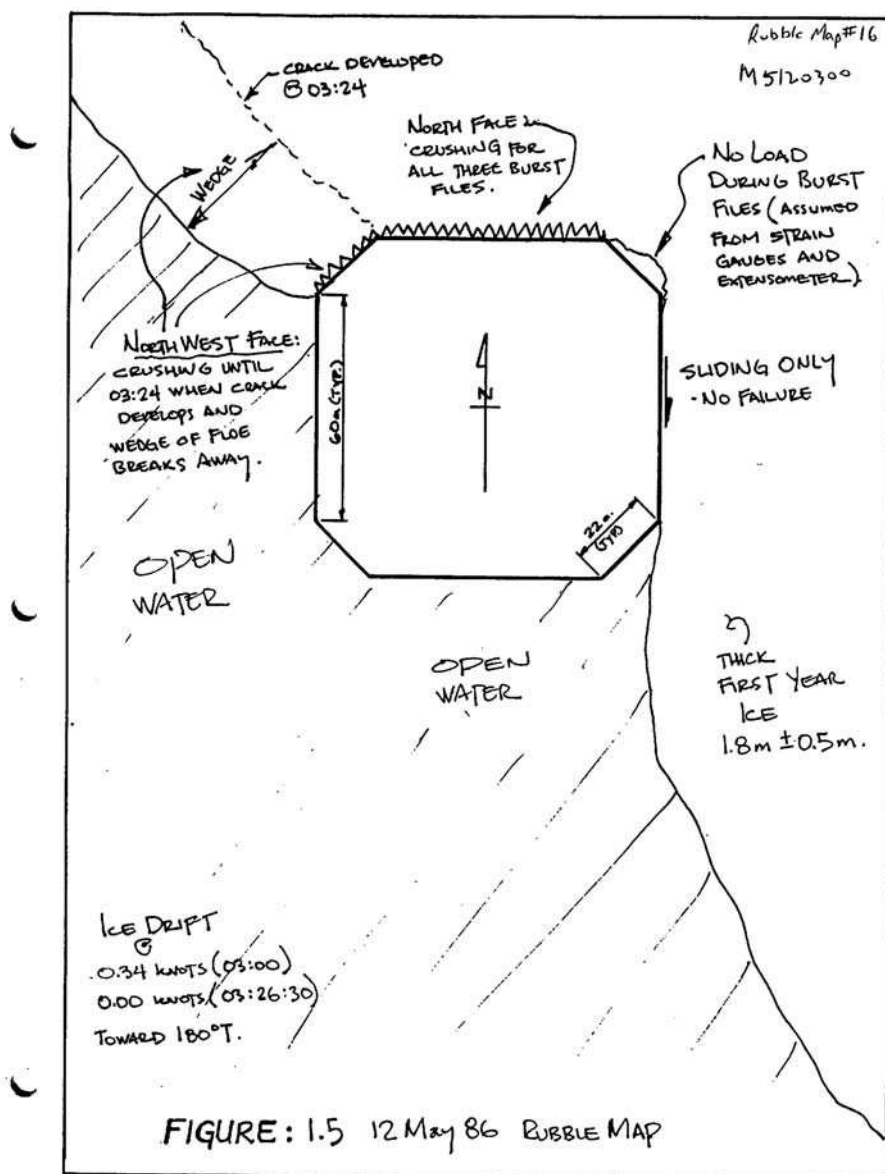 Rubble Map #16
M5120300
CRACK DEVELOPED
@ 03:24
WEDGE
NORTH FACE:
CRUSHING FOR
ALL THREE BURST
FILES.
NO LOAD
DURING BURST
FILES (ASSUMED
FROM STRAIN
GAUGES AND
EXTENSOMETER).
NORTH WEST FACE:
CRUSHING UNTIL
03:24 WHEN CRACK
DEVELOPS AND
WEDGE OF FLOE
BREAKS AWAY.
60m (TYP.)
N
SLIDING ONLY
- NO FAILURE
22m.
(TYP)
OPEN
WATER
OPEN
WATER
THICK
FIRST YEAR
ICE
1.8m ± 0.5m.
ICE DRIFT
@
0.34 KNOTS (03:00)
0.00 KNOTS (03:26:30)
TOWARD 180°T.
FIGURE: 1.5 12 May 86 RUBBLE MAP